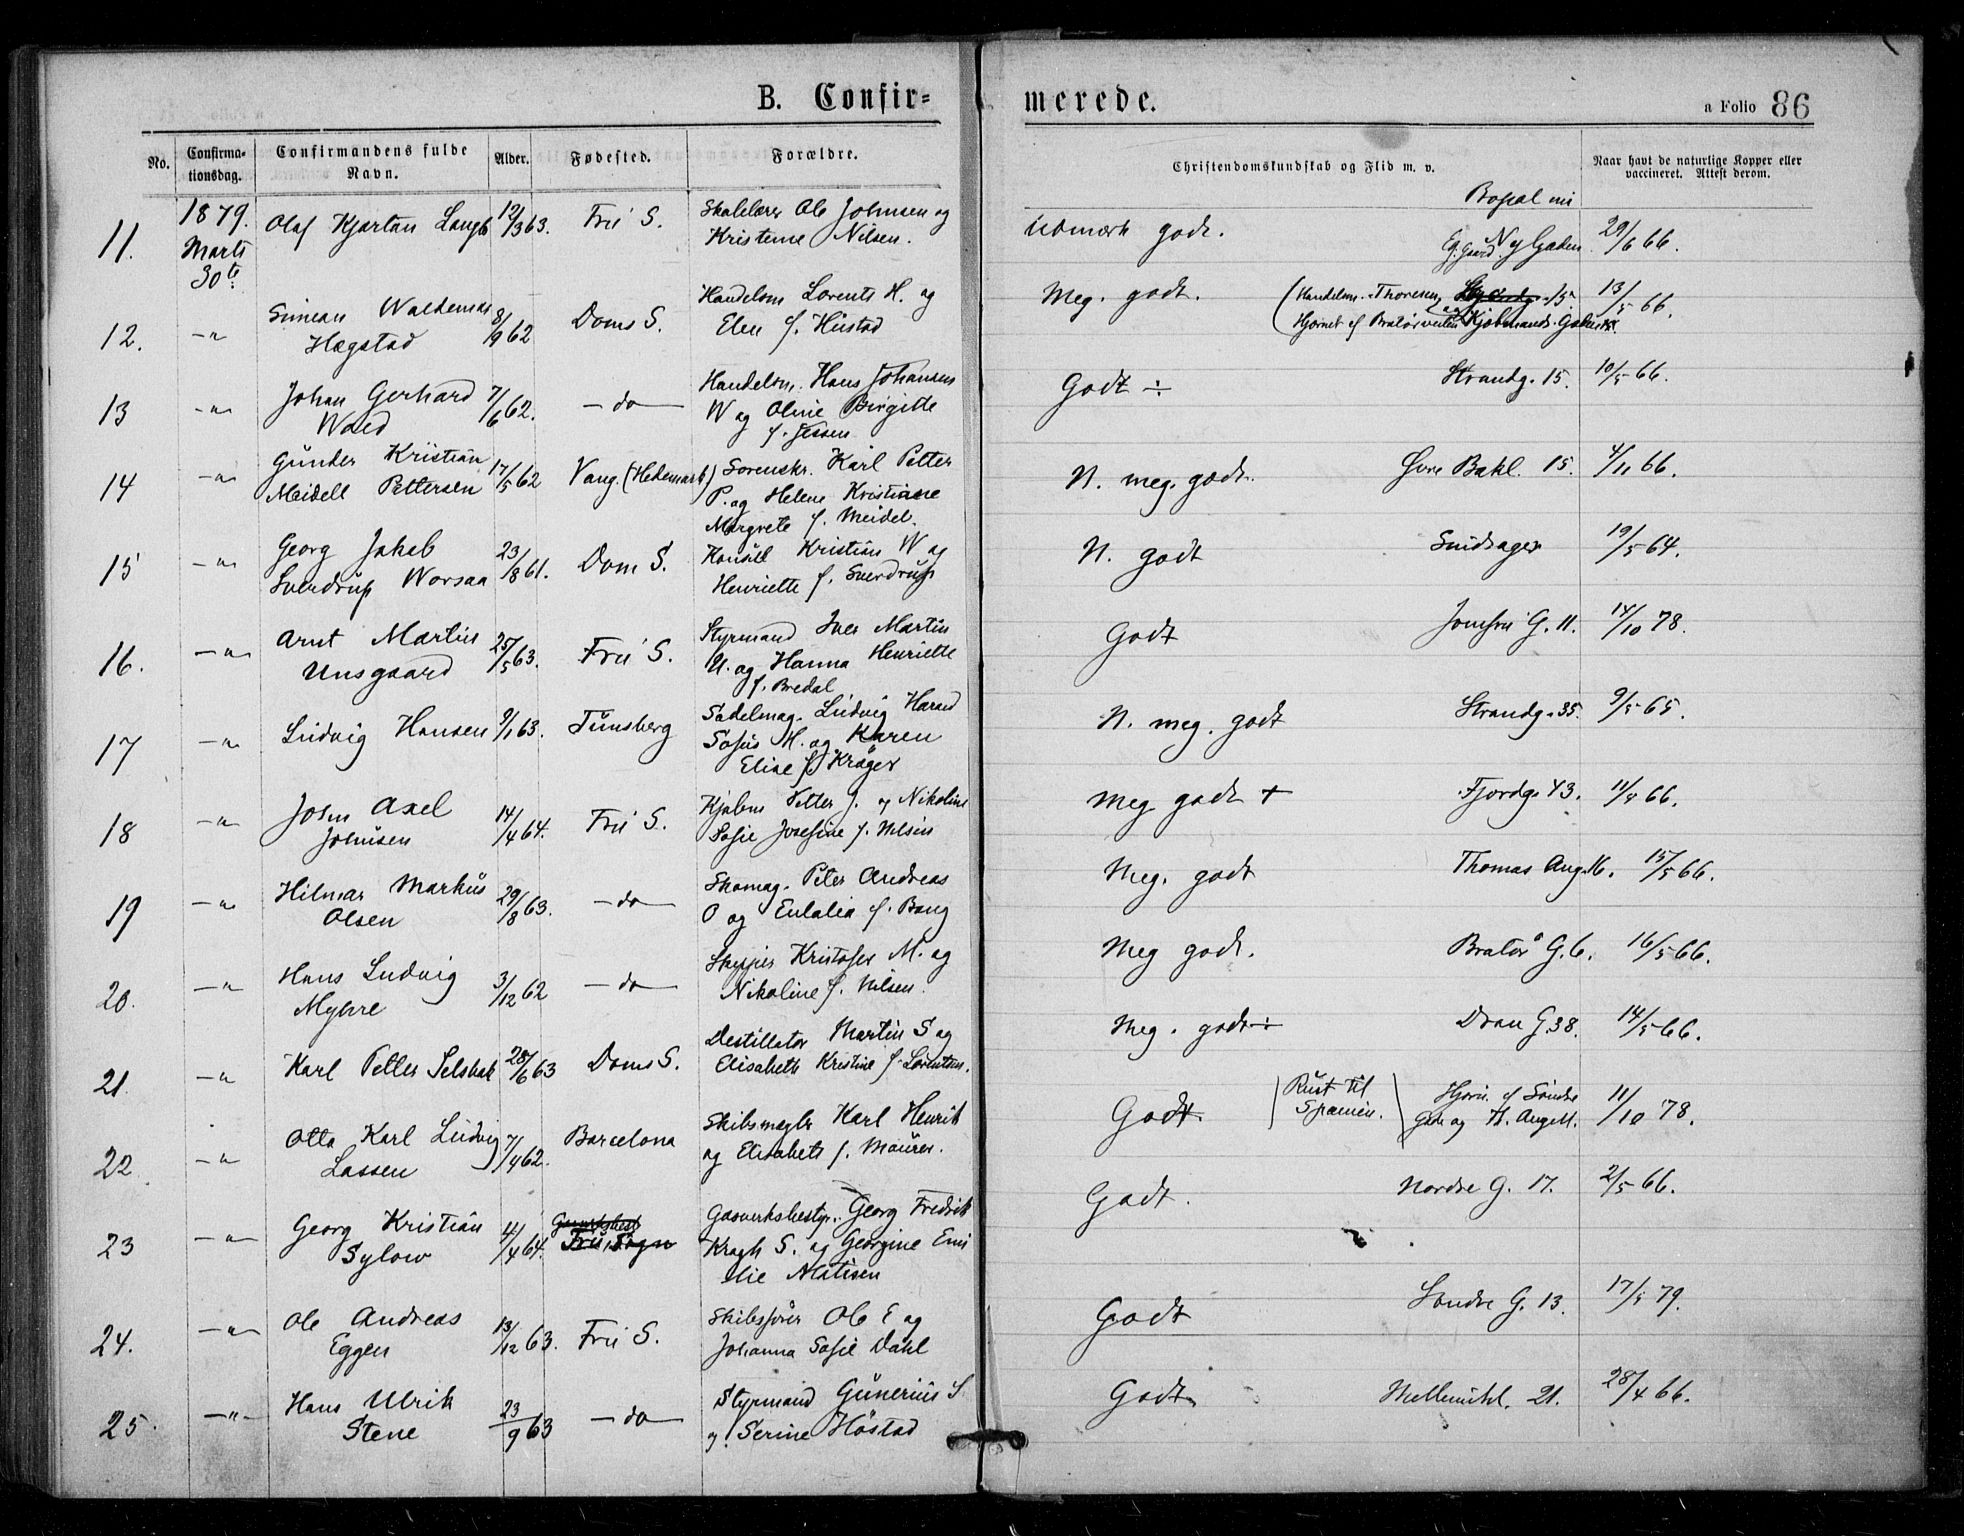 B. Confir=
merede.
a Folio 86
No.
Confirma-
tionsdag.
Confirmandens fulde
Navn.
Alder.
Fødested.
Forældre.
Christendomskundskab og Flid m. v.
Naar havt de naturlige Kopper eller
vaccineret. Attest derom.
1879.
Marts
30te
11. Olaf Kjartan 12/3 63. Frü S. Skolelærer Ole Johnsen og
Kristine Nilsen.
Udmærk godt. Ny Gaden 29/6 66.
12. -"- Simean Waldemar
Hægstad
8/9 62 Doms S. Handelsm Lorents H. og
Elen f. Hüstad
Meg. godt. (Handelsm. Thoresen
Hjørnet af Bratørveiten og Kjøbmands Gaden 13/5 66.
13 -"- Johan Gerhard
Wold
7/6 62. -do- Handelsm. Hans Johansen
W og Oline Birgitte
f. Jessen
Godt ÷ Strandg. 15. 10/5 66.
14 -"- Günder Kristian
Meidell Pettersen
17/5 62 Vang (Hedemark) Sorenskr. Karl Petter
P. og Helene Kristiane
Margrete f. Meidel.
N. meg. godt. Øvre Bakl. 15. 4/11 66.
15 -"- Georg Jakob
Sverdrup Worsaa
23/8 61. Dom S. Konsül Kristian W og
Henriette f. Sverdrup
N. godt 19/5 64.
16. -"- Arnt Martin
Unsgaard
25/5 63. Frü S. Styrmand Iver Martin
U. og Hanna Henriette
f. Bredal
Godt Jomfru G. 11. 14/10 78.
17 -"- Lüdvig Hansen 9/1 63. Tünsberg Sadelmag. Lüdvig
Sofüs H. og Karen
Elise f. Krøger
N. meg. godt Strandg. 35. 9/5 65.
18 -"- John Axel
Johnsen
14/4 64. Frü S. Petter J. og Nikoline
Sofie Josefine f. Nilsen
Meg godt + Fjordg. 43. 11/5 66.
19 -"- Hilmar Markus
Olsen
29/8 63. -do- Skomag. Peter Andreas
O og Eulalia f. Bang
Meg. godt Thomas Ang. 16. 15/5 66.
20. -"- Hans Ludvig
Myhre
3/12 62 -do- Skipper Kristofer M. og
Nikoline f. Nilsen.
Meg godt. Bratør G. 6. 16/5 66.
21. -"- Karl Petter Selsbak 28/6 63 Doms S. Destillatør Martin S og
Elisabeth Kristine f. Lorentsen.
Meg. godt ÷ Dron G. 38. 14/5 66.
22 -"- Otto Karl Ludvig
Lassen
7/4 62. Barcelona Skibsmægler Karl Henrik
og Elisabeth f. Maurer.
Godt. (Reist til
Spanien.) Hjørn. af Søndre
Gade og Th. Angell. 11/10 78.
23 -"- Georg Kristian
Sylow
11/4 64. Frü Sogn Gasverksbestyr. Georg Fredrik
Kragh S. og Georgine Emi
lie Matisen
Godt. Nordre G. 17. 2/5 66.
24. -"- Ole Andreas
Eggen
13/12 63. Frü S. Skibsfører Ole E og
Johanna Sofie Dahl
Godt Søndre G. 13. 17/5 79.
25 -"- Hans Ulrik
Stene
23/9 63 -do- Styrmand Günerius S
og Serine Höstad
Godt Mellemihl. 21. 28/4 66.